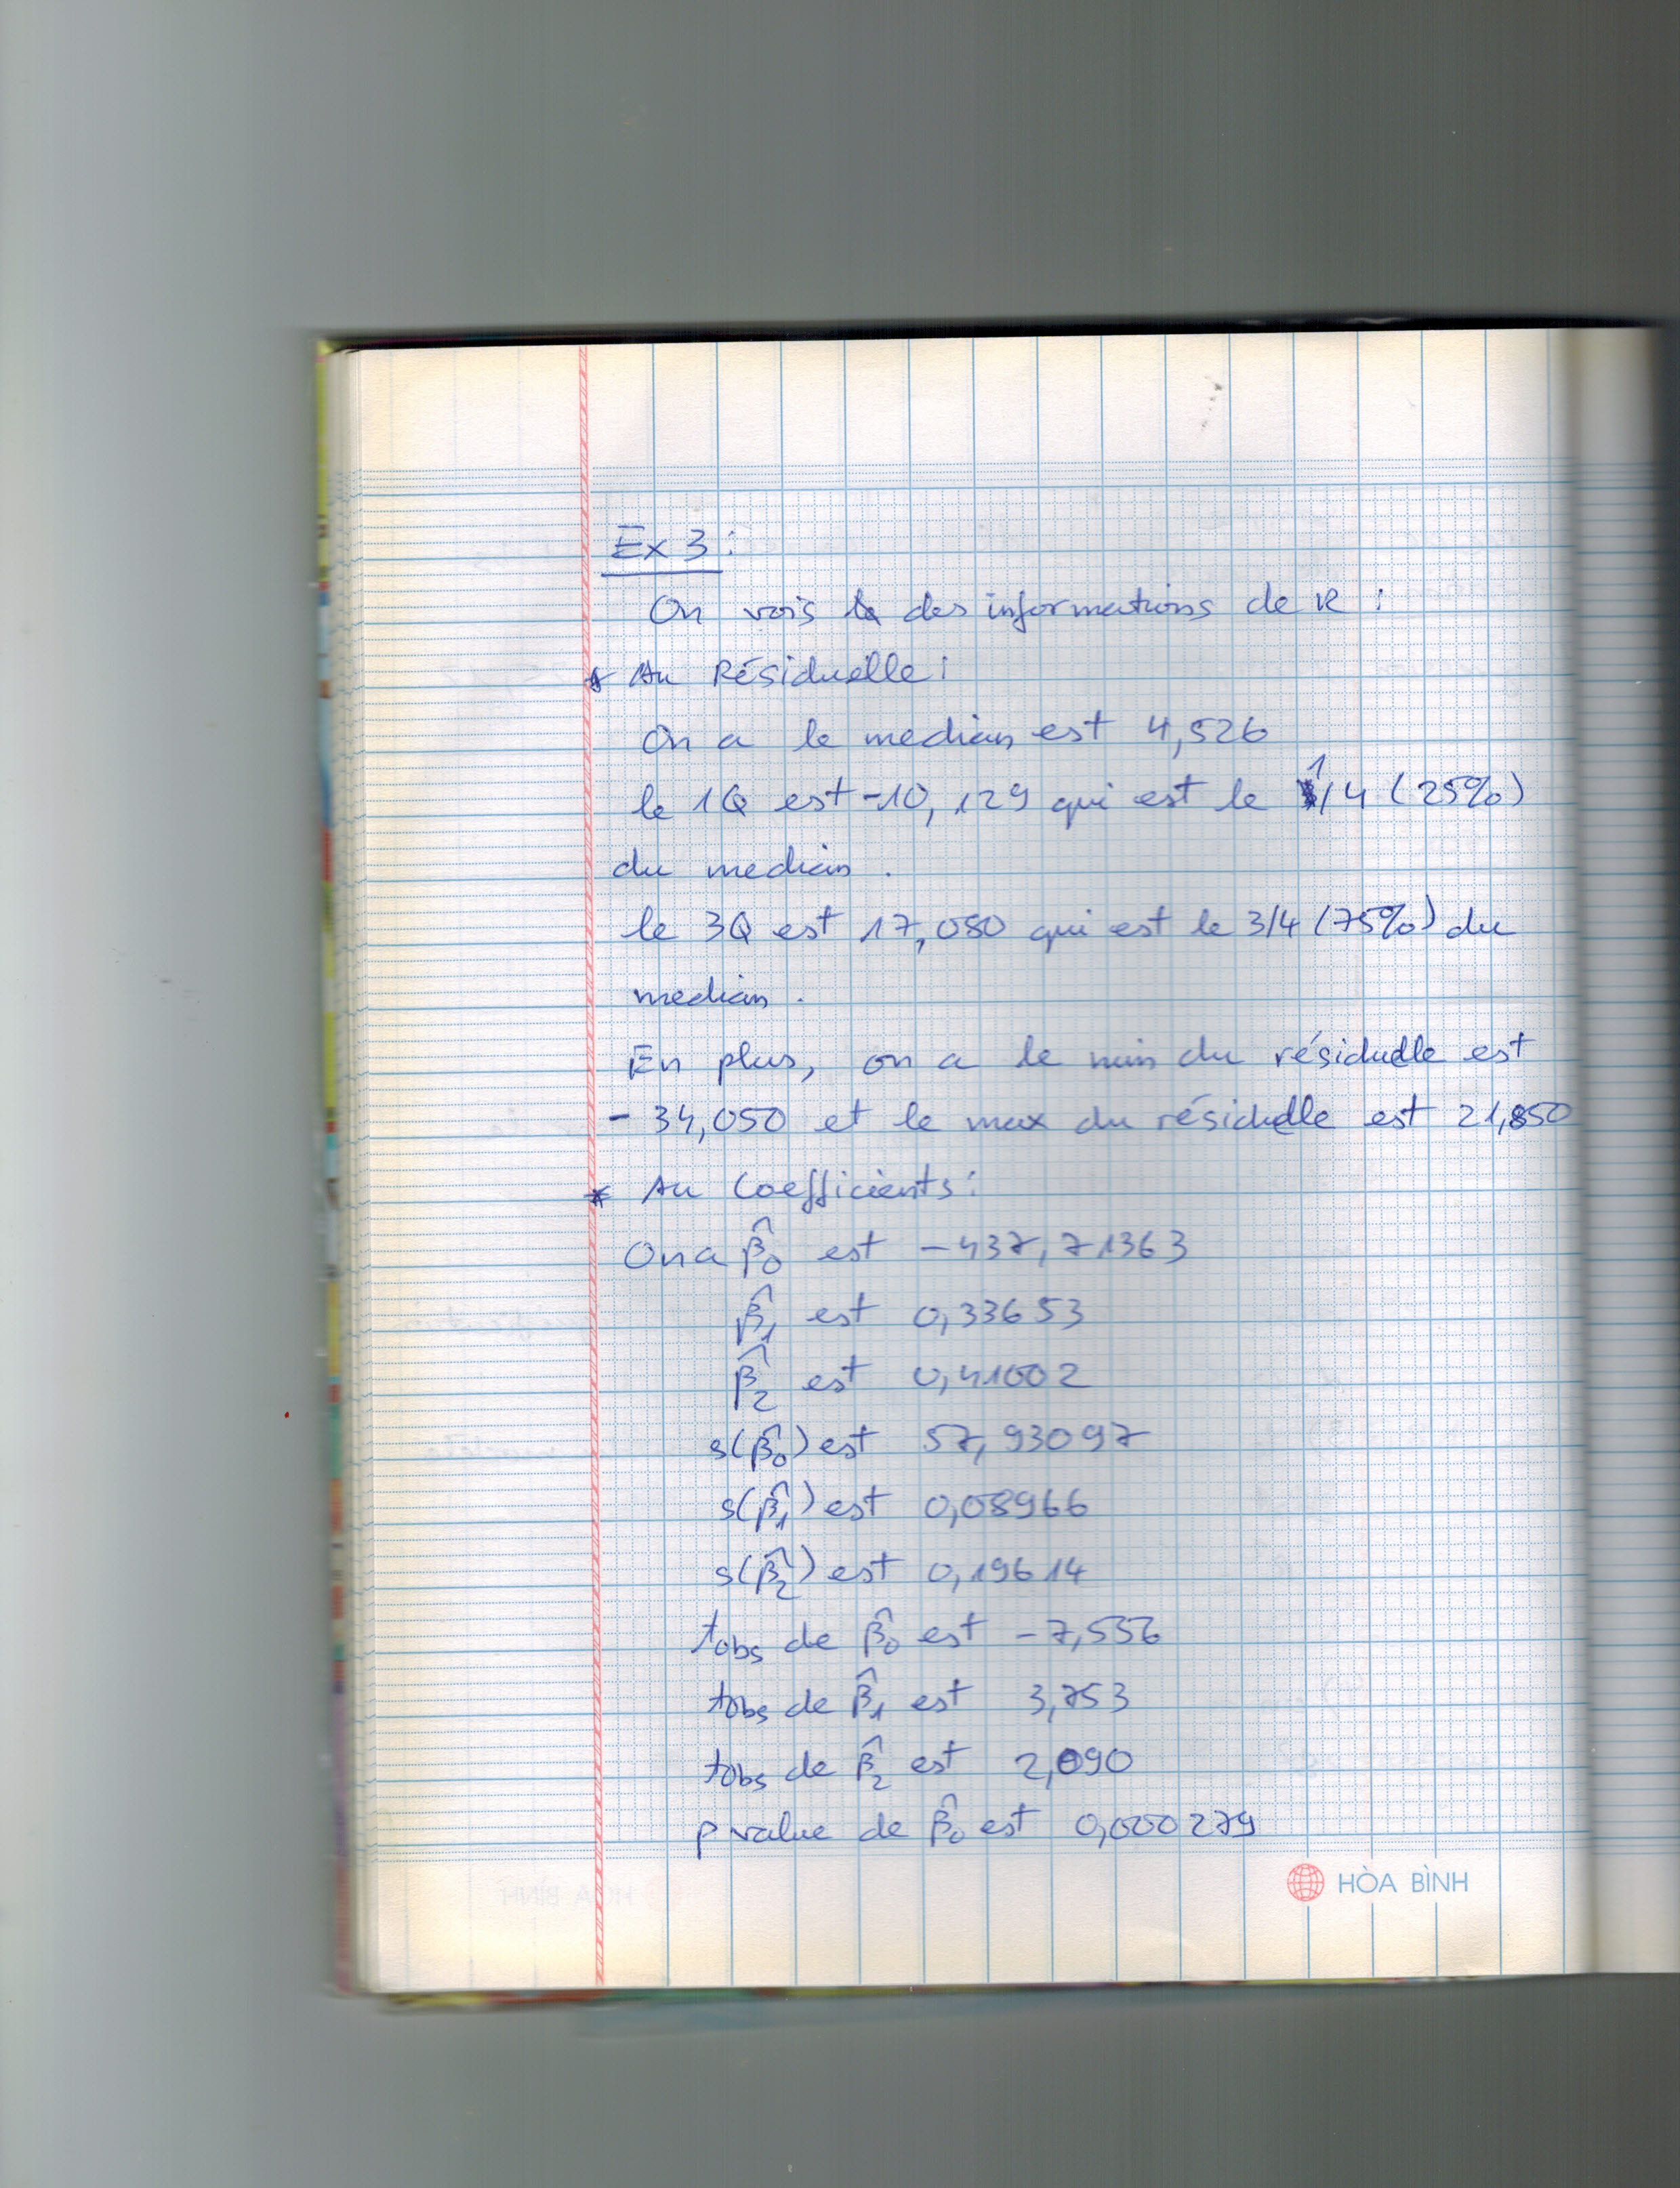 Ex 3 :
On vois des informations de R :
* Au Résiduelle :
On a le median est 4,526
le 1Q est -10,129 qui est le 1/4 (25%)
du median .
le 3Q est 17,080 qui est le 3/4 (75%) du
median .
En plus, on a le min du résiduelle est
- 34,050 et le max du résiduelle est 21,850
* Au Coefficients :
On a β̂0 est -437,71363
β̂1 est 0,33653
β̂2 est 0,41002
s(β̂0) est 57,93097
s(β̂1) est 0,08966
s(β̂2) est 0,19614
tobs de β̂0 est -7,556
tobs de β̂1 est 3,753
tobs de β̂2 est 2,090
p value de β̂0 est 0,000279
HÒA BÌNH